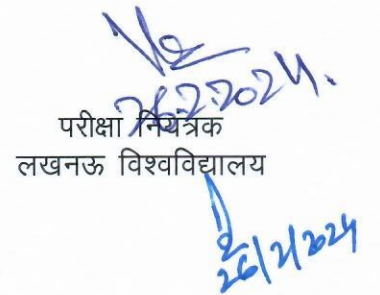 26.2.2024.
परीक्षा नियंत्रक
लखनऊ विश्वविद्यालय
26/2/2024